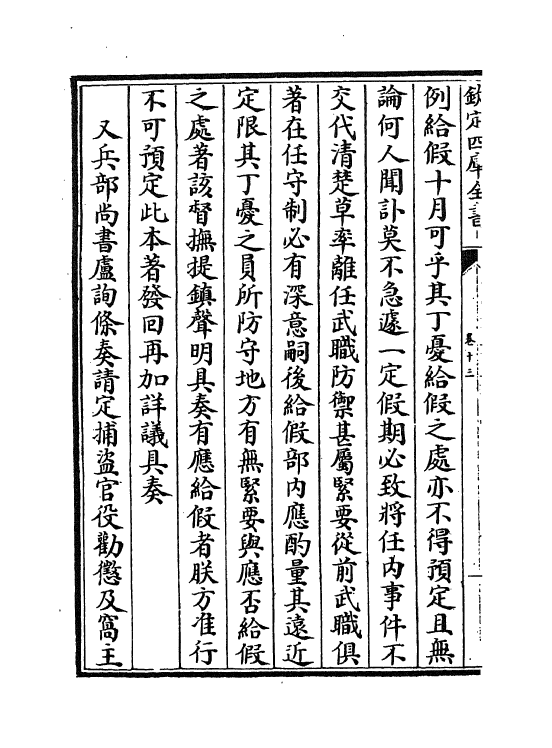 欽定四庫全書
卷十三
例給假十月可乎其丁憂給假之處亦不得預定且無
論何人聞訃莫不急遽一定假期必致將任内事件不
交代清楚草率離任武職防禦甚屬緊要從前武職俱
著在任守制必有深意嗣後給假部内應酌量其遠近
定限其丁憂之員所防守地方有無緊要與應否給假
之處著該督撫提鎮聲明具奏有應給假者朕方准行
不可預定此本著發回再加詳議具奏
又兵部尚書盧詢條奏請定捕盜官役勸懲及窩主